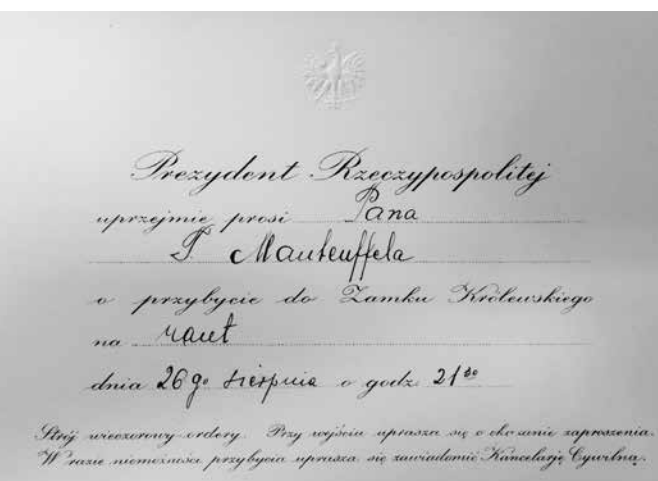 Prezydent Rzeczypospolitej
uprzejmie prosi Pana
T. Manteuffela
o przybycie do Zamku Królewskiego
na raut
dnia 26go sierpnia o godz. 21³⁰
Strój wieczorowy-ordery. Przy wejściu uprasza się o okazanie zaproszenia.
W razie niemożności przybycia uprasza się zawiadomić Kancelarję Cywilną.